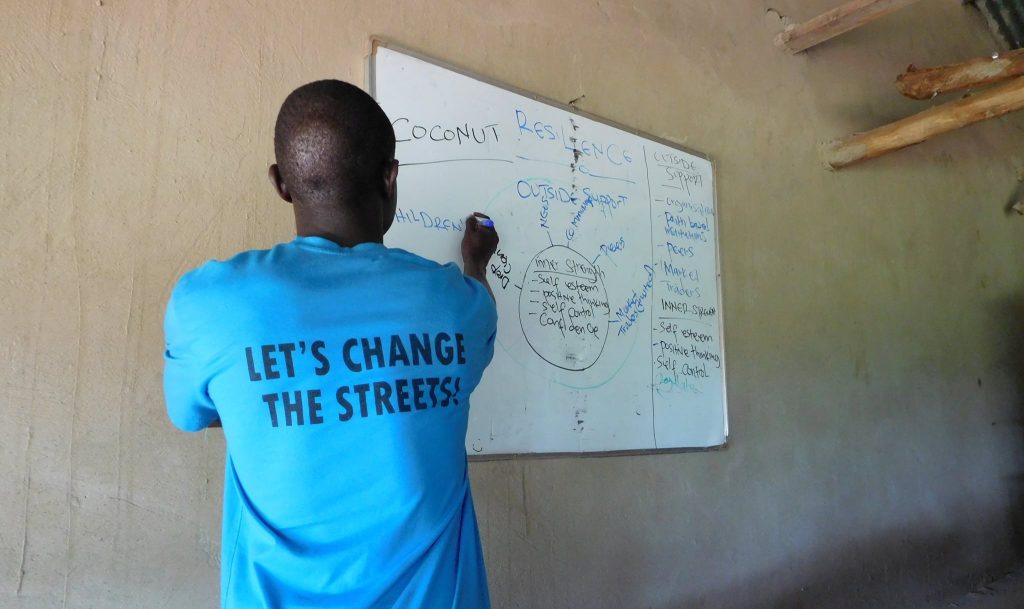 COCONUT RESILIENCE
OUTSIDE SUPPORT
HILDREN
NGOs
Peers
Market
Inner Strength
- Self esteem
- positive thinking
- Self control
Confidence
OUTSIDE
Support
- Faith based
institutions
- Peers
- Market
Traders
INNER
- Self esteem
- positive thinking
- Self control
LET'S CHANGE
THE STREETS!